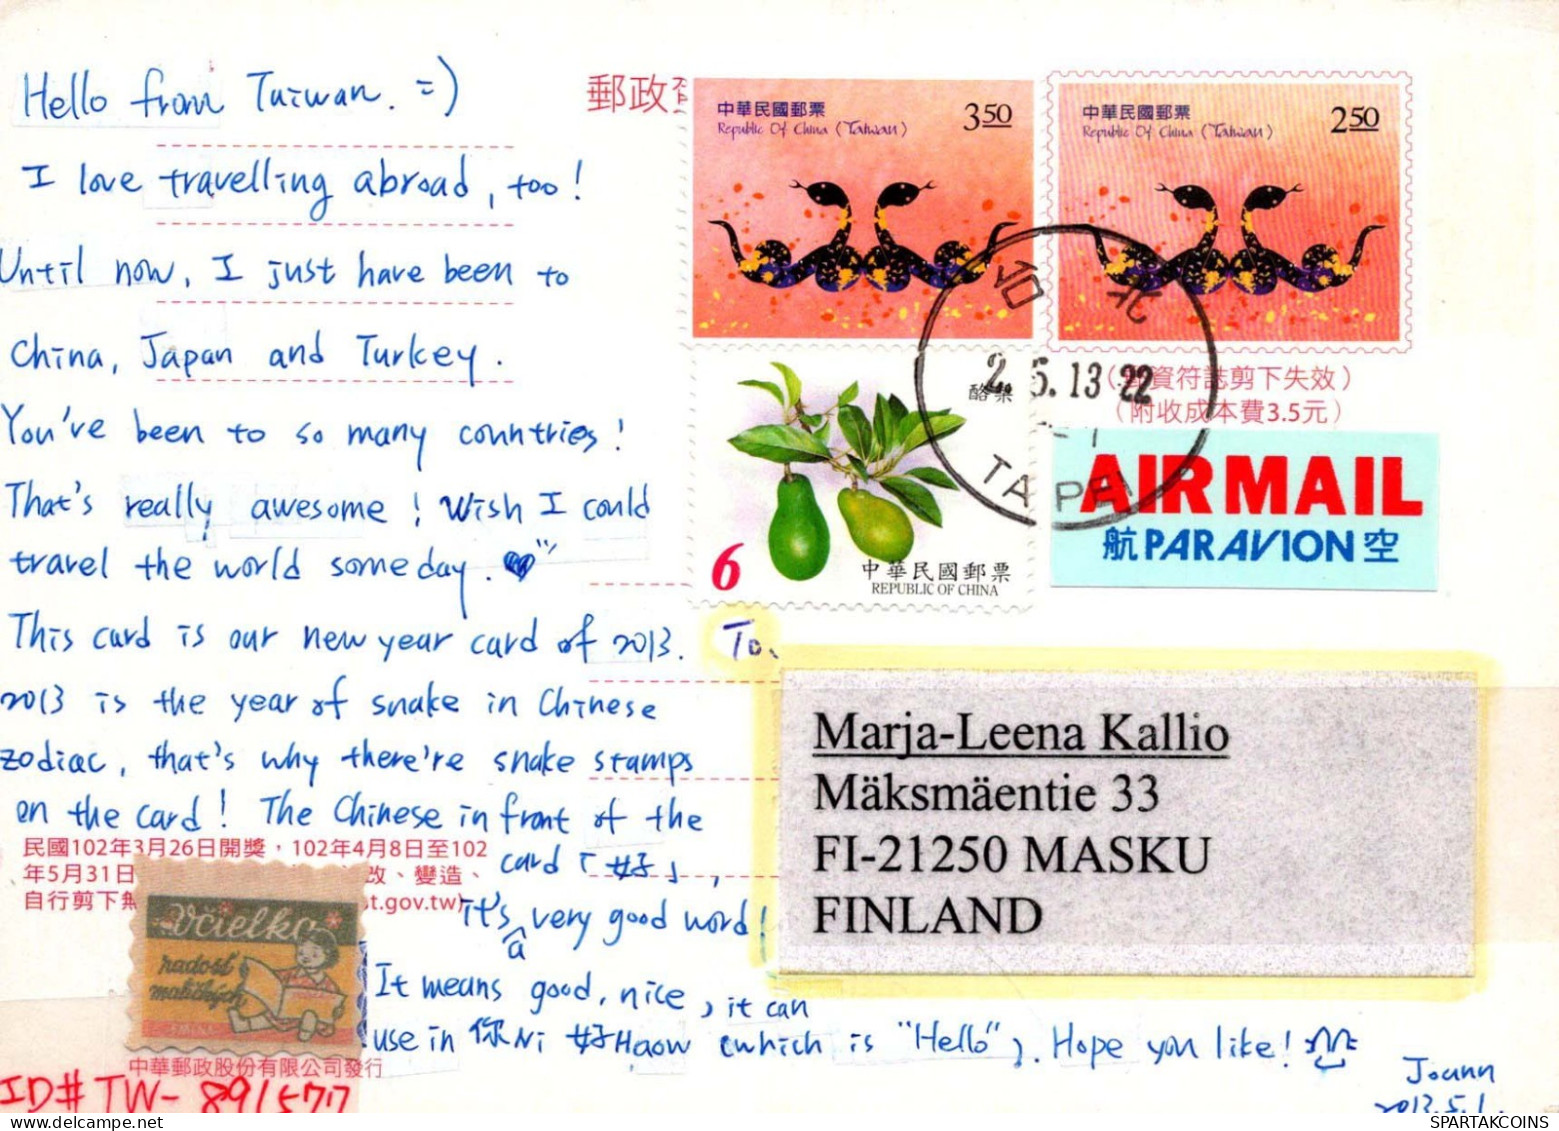 Hello from Taiwan. =)
I love travelling abroad, too!
Until now, I just have been to
China, Japan and Turkey.
You've been to so many countries!
That's really awesome! Wish I could
travel the world someday.
This card is our new year card of 2013.
2013 is the year of snake in Chinese
zodiac, that's why there're snake stamps
on the card! The Chinese in front of the
card「好」,
it's a very good word!
It means good, nice, it can
use in 你Ni 好Haow (which is "Hello"). Hope you like!
Joann
2013.5.1.
ID# TW-891577
民國102年3月26日開獎，102年4月8日至102
年5月31日
改、變造、
自行剪下無
st.gov.tw)
Včielka
radosť
maličkých
中華郵政股份有限公司發行
郵政
中華民國郵票
Republic Of China (Taiwan)
3.50
中華民國郵票
Republic Of China (Taiwan)
2.50
資符誌剪下失效）
（附收成本費3.5元）
酪梨
6
中華民國郵票
REPUBLIC OF CHINA
台北
2.5.13 22
TAIPEI
AIR MAIL
航 PAR AVION 空
To.
Marja-Leena Kallio
Mäksmäentie 33
FI-21250 MASKU
FINLAND
SPARTAKCOINS